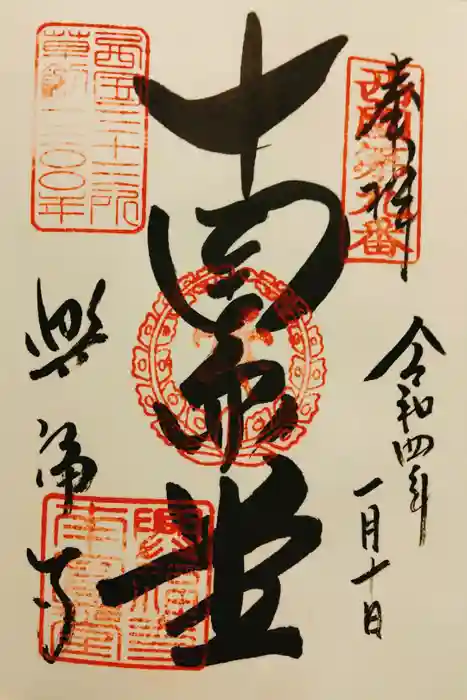 奉拝
西国第九番
令和四年
一月十日
南円堂
西国三十三所
草創一三〇〇年
興福寺